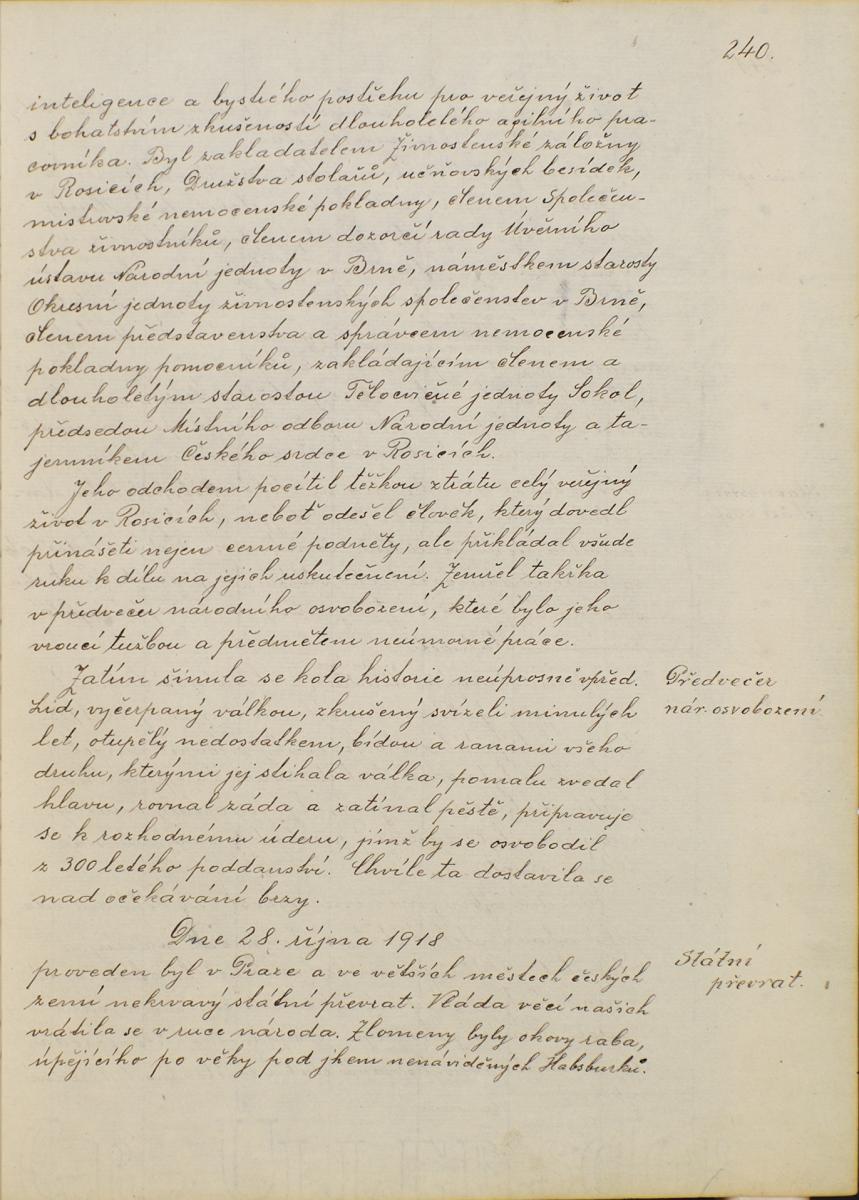 240.
inteligence a bystrého postřehu pro veřejný život
s bohatstvím zkušeností dlouholetého agilního pra-
covníka. Byl zakladatelem Živnostenské záložny
v Rosicích, Družstva stolařů, učňovských besídek,
mistrovské nemocenské pokladny, členem Společen-
stva živnostníků, členem dozorčí rady Úvěrního
ústavu Národní jednoty v Brně, náměstkem starosty
Okresní jednoty živnostenských společenstev v Brně,
členem představenstva a správcem nemocenské
pokladny pomocníků, zakládajícím členem a
dlouholetým starostou Tělocvičné jednoty Sokol,
předsedou Místního odboru Národní jednoty a ta-
jemníkem Českého srdce v Rosicích.
Jeho odchodem pocítil těžkou ztrátu celý veřejný
život v Rosicích, neboť odešel člověk, který dovedl
přinášeti nejen cenné podněty, ale přikládal všude
ruku k dílu na jejich uskutečnení. Zemřel takřka
v předvečer národního osvobození, které bylo jeho
vroucí tužbou a předmětem neúmorné práce.
Zatím šinula se kola historie neúprosně vpřed.
Předvečer
nár. osvobození
Lid, vyčerpaný válkou, zkrušený svízeli minulých
let, otupělý nedostatkem, bídou a ranami všeho
druhu, kterými jej stihala válka, pomalu zvedal
hlavu, rovnal záda a zatínal pěstě, připravuje
se k rozhodnému úderu, jímž by se osvobodil
z 300letého poddanství. Chvíle ta dostavila se
nad očekávání brzy.
Dne 28. října 1918
Státní
převrat.
proveden byl v Praze a ve větších městech českých
zemí nekrvavý státní převrat. Vláda věcí našich
vrátila se v ruce národa. Zlomeny byly okovy raba,
úpějícího po věky pod jhem nenáviděných Habsburků.